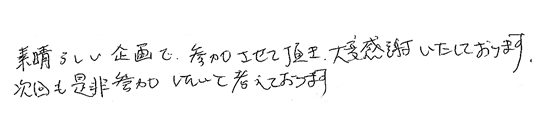 素晴らしい企画で、参加させて頂き、大変感謝いたしております。
次回も是非参加したいと考えております